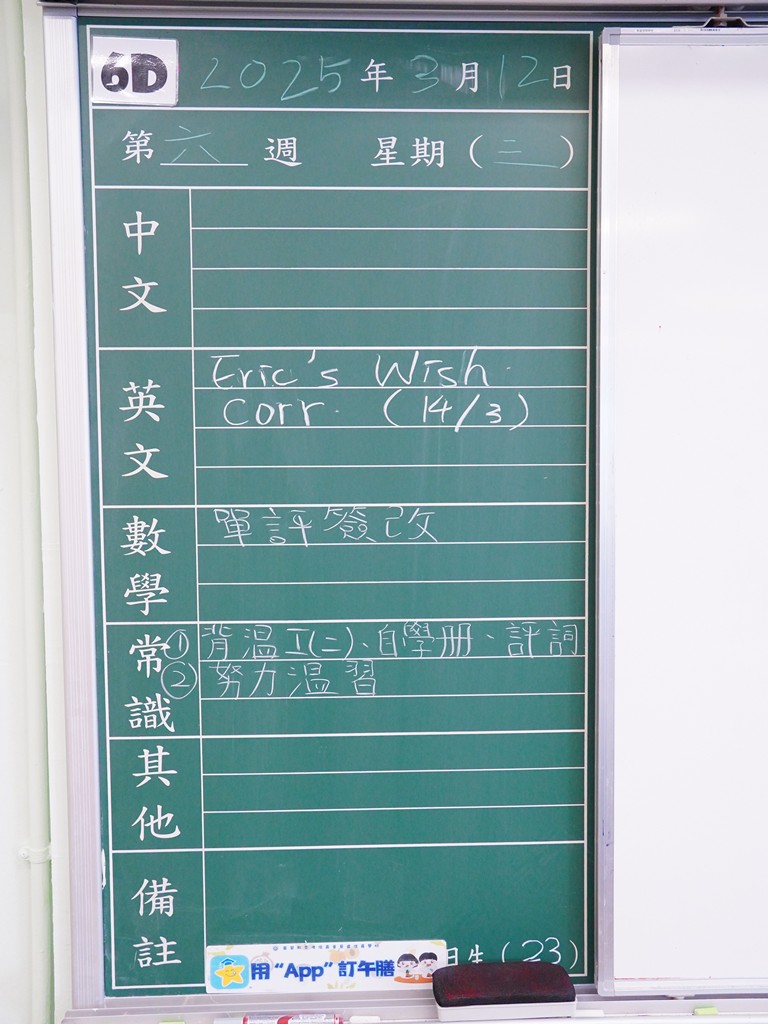 6D 2025年3月12日
第六週 星期(三)
中文
英文
Eric's Wish.
Corr. (14/3)
數學
單評簽改
常識
① 背温I(二)、自學册、評詞
② 努力温習
其他
備註
用“App”訂午膳
日生(23)